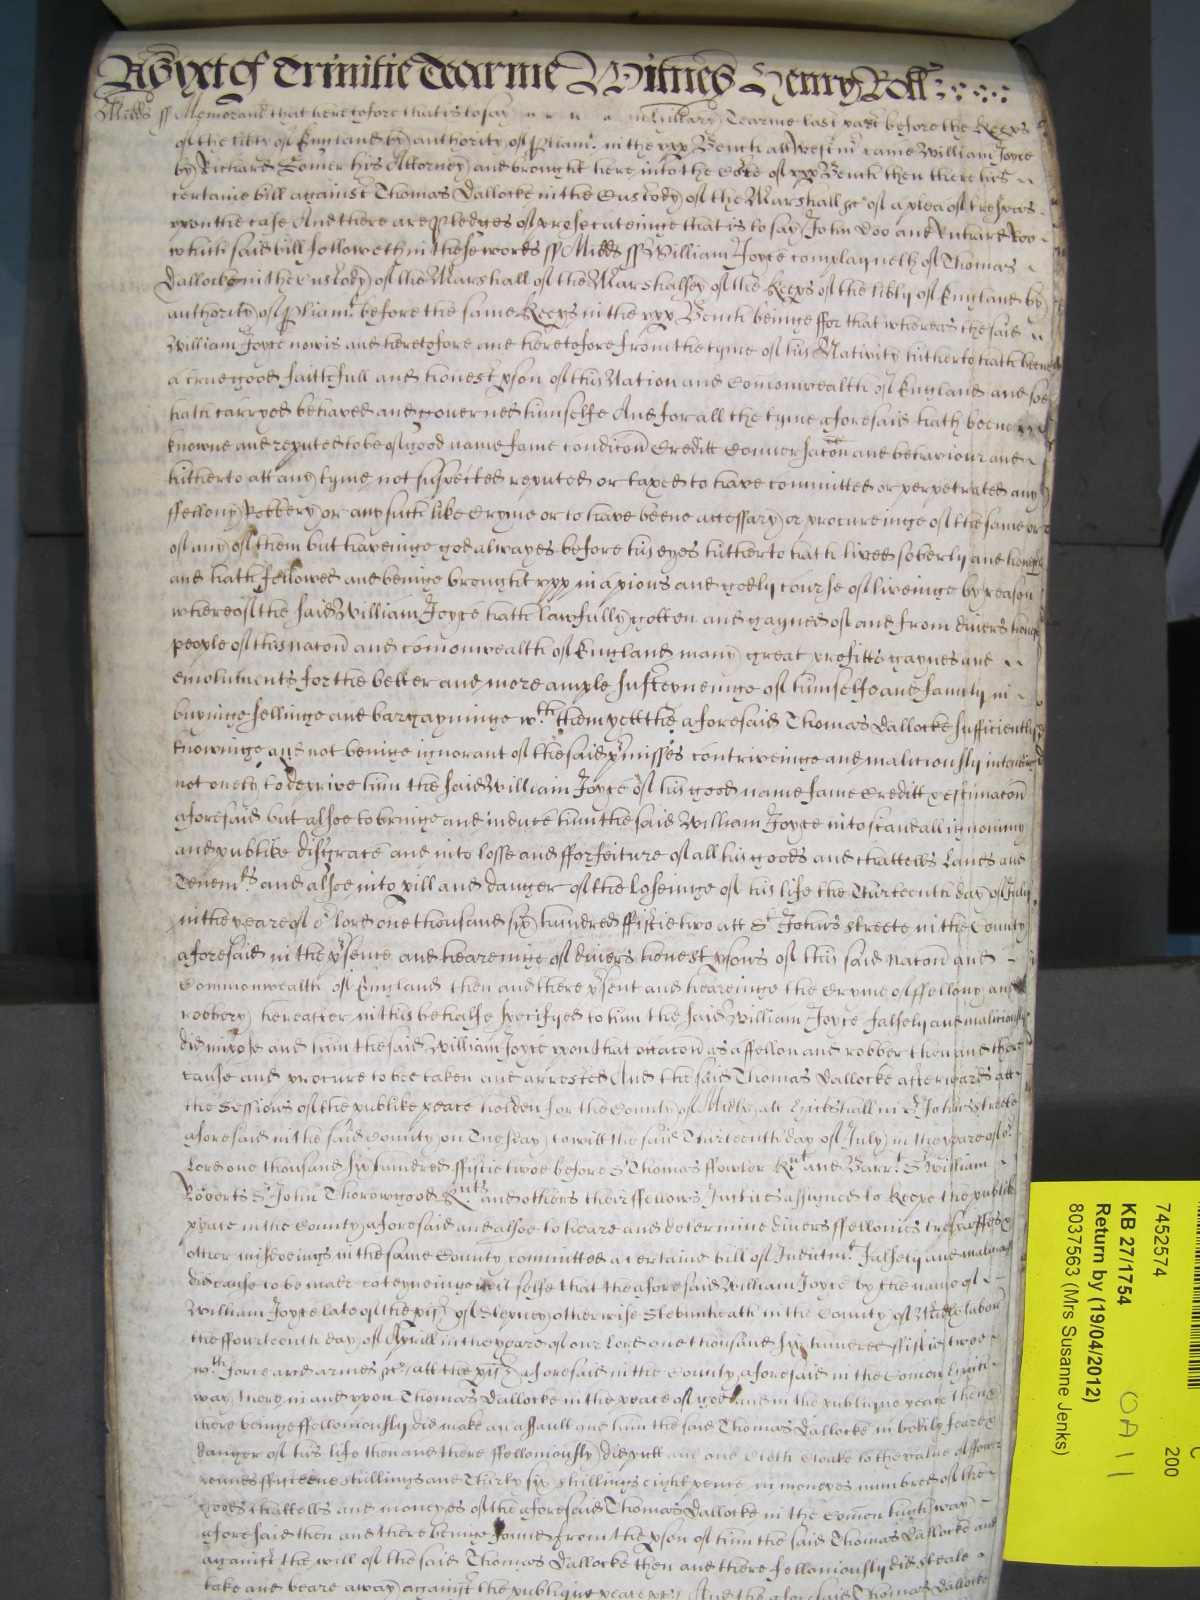 As yet of Trinitie Tearme Witnes Henry Roll
Midds ss Memorand that heretofore that is to say in Hillary Tearme last past before the Keeps
of the libty of England by authority of Pliam.t in the vpp Bench att Westm.r came William Joyce
by Richard Comer his Attorney and brought here into the Cort of vpp Bench then there his
certaine bill against Thomas Dallocke in the Custody of the Marshall &c of a plea of trespas
vpon the case And there are Pledges of prosecuteinge that is to say John Doo and Richard Roo
which said bill followeth in these words ss Midds ss William Joyce complayneth of Thomas
Dallocke in the Custody of the Marshall of the Marshalsey of the Keeps of the libty of England by
authority of Pliam.t before the same Keeps in the vpp Bench beinge ffor that whereas the said
William Joyce now is and heretofore and heretofore from the tyme of his Nativity hitherto hath beene
a true good faithfull and honest pson of this Nation and Comonwealth of England and soe
hath carryed behaved and governed himselfe And for all the tyme aforesaid hath beene
knowne and reputed to be of good name fame condicon Creditt Conversacon and behaviour and
hitherto att any tyme not suspected reputed or taxed to have committed or perpetrated any
ffellony Robbery or any such like Cryme or to have beene accessary or procureinge of the same or
of any of them but haveinge god alwayes before his eyes hitherto hath lived soberly and honestly
and hath followed and beinge brought vpp in a pious and godly course of liveinge by reason
whereof the said William Joyce hath lawfully gotten and gayned of and from divers honest
people of this nacon and comonwealth of England many great profitts gaynes and
emoluments for the better and more ample susteyneinge of himselfe and family in
buyinge sellinge and bargayninge w.th them yett the aforesaid Thomas Dallocke sufficiently
knowinge and not beinge ignorant of the said p.misses contriveinge and maliciously intendinge
not onely to deprive him the said William Joyce of his good name fame Creditt & estimacon
aforesaid but alsoe to bringe and induce him the said William Joyce into scandall ignominy
and publike disgrace and into losse and fforfeiture of all his goods and chattells Lands and
Tenem.ts and alsoe into pill and danger of the loseinge of his life the Thirteenth day of July
in the yeare of o.r lord one thousand six hundred ffiftie two att S.t Johns streete in the County
aforesaid in the p.sence and heareinge of divers honest psons of this said nacon and
Commonwealth of England then and there p.sent and heareinge the Cryme of ffellony and
robbery hereafter in this behalfe specifyed to him the said William Joyce falsely and maliciously
did impose and him the said William Joyce vpon that occacon as a ffellon and robber then and there
cause and procure to bee taken and arrested And the said Thomas Dallocke afterwards att
the Sessions of the publike peace holden for the County of Midd att Hickshall in S.t Johns Streete
aforesaid in the said County on Tuesday to witt the said Thirteenth day of July in the yeare of o.r
Lord one thousand six hundred ffiftie twoe before S.r Thomas ffowler K.nt and Barr.t S.r William
Roberts S.r John Thorowgood K.nts and others their ffellows Justices assigned to keepe the publike
peace in the County aforesaid and alsoe to heare and determine divers ffellonies trespasses &
other misdoeings in the same County committed a certaine bill of Indictm.t falsely and maliciously
did cause to be made conteyneinge in it selfe that the aforesaid William Joyce by the name of
William Joyce late of the pish of Stepney otherwise Stebunheath in the County of Midd labor
the ffourteenth day of Aprill in the yeare of our lord one thousand six hundred ffiftie twoe
w.th force and armes &c att the pish aforesaid in the County aforesaid in the Comon high
way there in and vpon Thomas Dallocke in the peace of god and in the publique peace then &
there beinge ffelloniously did make an assault and him the said Thomas Dallocke in bodily feare &
danger of his life then and there ffelloniously did putt and one Cloth Cloake to the value of
ffifteene shillings and Thirty six shillings eight pence in moneyes numbred of the
goods chattells and moneyes of the aforesaid Thomas Dallocke in the Comon high way
aforesaid then and there beinge found from the pson of him the said Thomas Dallocke and
against the will of the said Thomas Dallocke then and there ffelloniously did steale
take and beare away against the publique peace &c And the aforesaid Thomas Dallocke
7452574
200
KB 27/1754
Return by (19/04/2012)
8037563 (Mrs Susanne Jenks)
OA 11